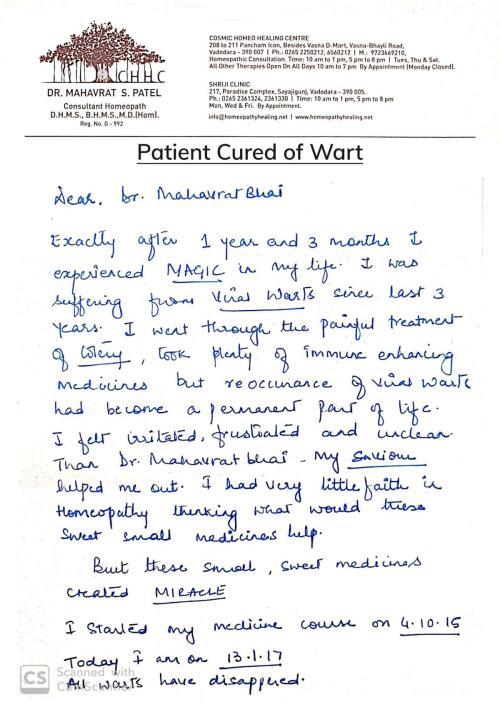 CHHC
DR. MAHAVRAT S. PATEL
Consultant Homeopath
D.H.M.S., B.H.M.S.,M.D.(Hom).
Reg. No. G - 992
COSMIC HOMEO HEALING CENTRE
208 to 211 Pancham Icon, Besides Vasna D-Mart, Vasna-Bhayli Road,
Vadodara - 390 007 | Ph.: 0265 2250212, 6560212 | M.: 9723669210,
Homeopathic Consultation. Time: 10 am to 1 pm, 5 pm to 8 pm | Tues, Thu & Sat.
All Other Therapies Open On All Days 10 am to 7 pm By Appointment (Monday Closed).
SHRIJI CLINIC
217, Paradise Complex, Sayajigunj, Vadodara - 390 005.
Ph.: 0265 2361324, 2361330 | Time: 10 am to 1 pm, 5 pm to 8 pm
Mon, Wed & Fri. By Appointment.
info@homeopathyhealing.net | www.homeopathyhealing.net
Patient Cured of Wart
Dear, Dr. Mahavrat Bhai
Exactly after 1 year and 3 months I
experienced MAGIC in my life. I was
suffering from Viral Warts since last 3
years. I went through the painful treatment
of , took plenty of immune enhancing
medicines but reoccurance of viral warts
had become a permanent part of life.
I felt irritated, frustrated and unclean.
Than Dr. Mahavrat bhai - my Saviour
helped me out. I had very little faith in
Homeopathy thinking what would these
sweet small medicines help.
But these small, sweet medicines
created MIRACLE
I started my medicine course on 4.10.15
Today I am on 13.1.17
All warts have disappered.
CS Scanned with
CamScanner